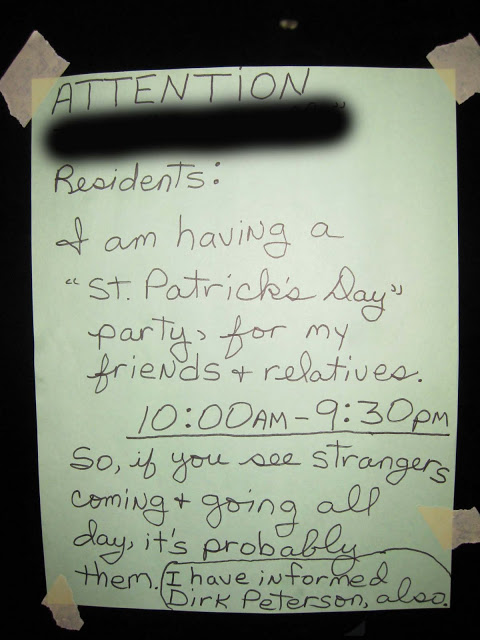 ATTENTION
Residents:
I am having a
"St. Patrick's Day"
party, for my
friends + relatives.
10:00AM - 9:30PM
So, if you see strangers
coming + going all
day, it's probably
them. I have informed
Dirk Peterson, also.